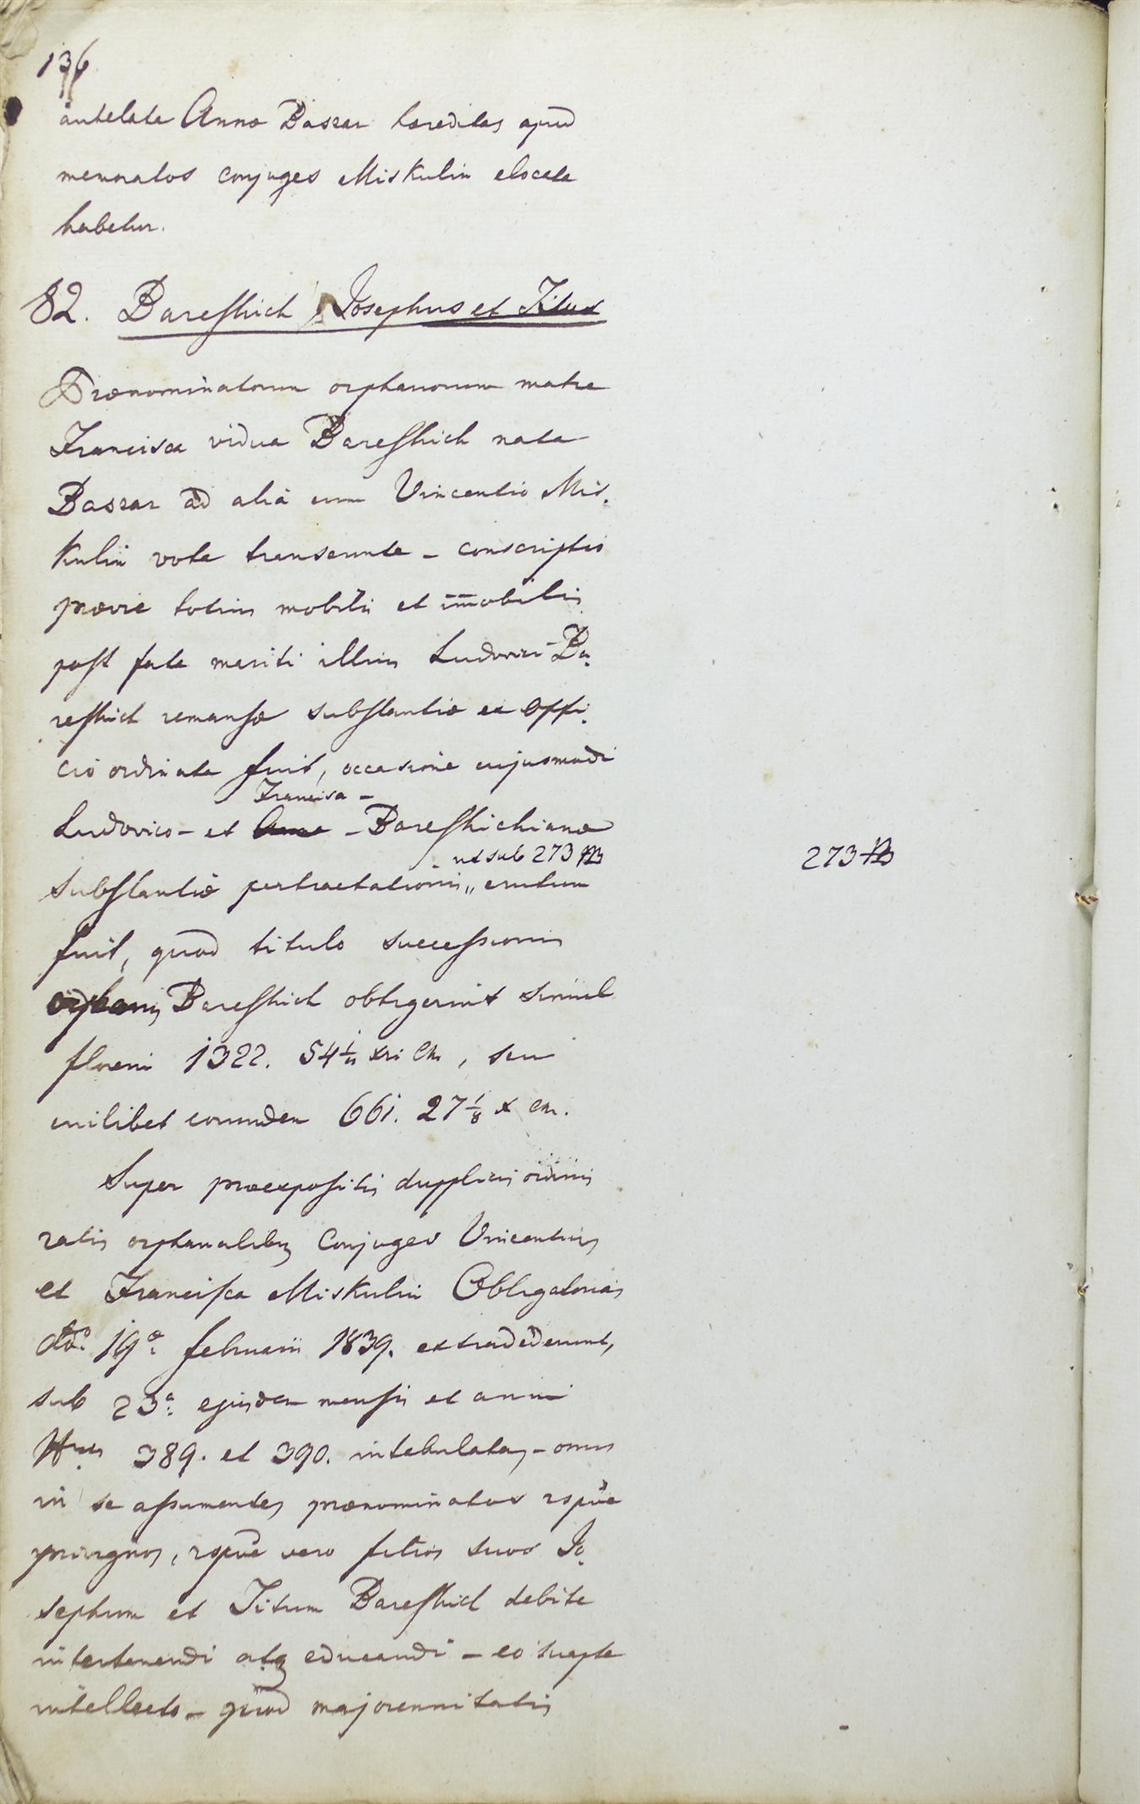 136
antelatæ Annæ Bassar hæreditas apud
memoratos conjuges Miskulin elocata
habetur.
82. Bareſhich Josephus et Titus
Prænominatorum orphanorum matre
Francisca vidua Bareſhich nata
Bassar ad alia cum Vincentio Mis-
kulin vota transeunte – conscriptio
prævie totius mobilis et im̅obilis
post fata mariti illius Ludovici Ba-
reſhich remansæ substantiæ ex offi-
cio ordinata fuit, occasione cujusmodi
Francisca –
Ludovico – et Anna – Bareſhichianæ
ut sub 273 273
substantiæ pertractationis „ erutum
fuit, quod titulo successionis
orphanis Bareſhich obtigerint simul
floreni 1322. 54 xri Cm, seu
cuilibet eorumdem 661. 27 1/8 x Cm.
Super præexpositis dupplicis ordinis
ratis orphanalibus Conjuges Vincentius
et Franciſca Miskulin Obligatorias
dto. 19a februarii 1839. extradederunt,
sub 23a ejusdem mensis et anni
Nris 389. et 390. intabulatas – onus
in se assumentes prænominatos rspve
privignos, rspve vero filios suos Jo-
sephum et Titum Bareſhich debite
intertenendi atq educandi – eo suapte
intellecto – quod majorennitatis